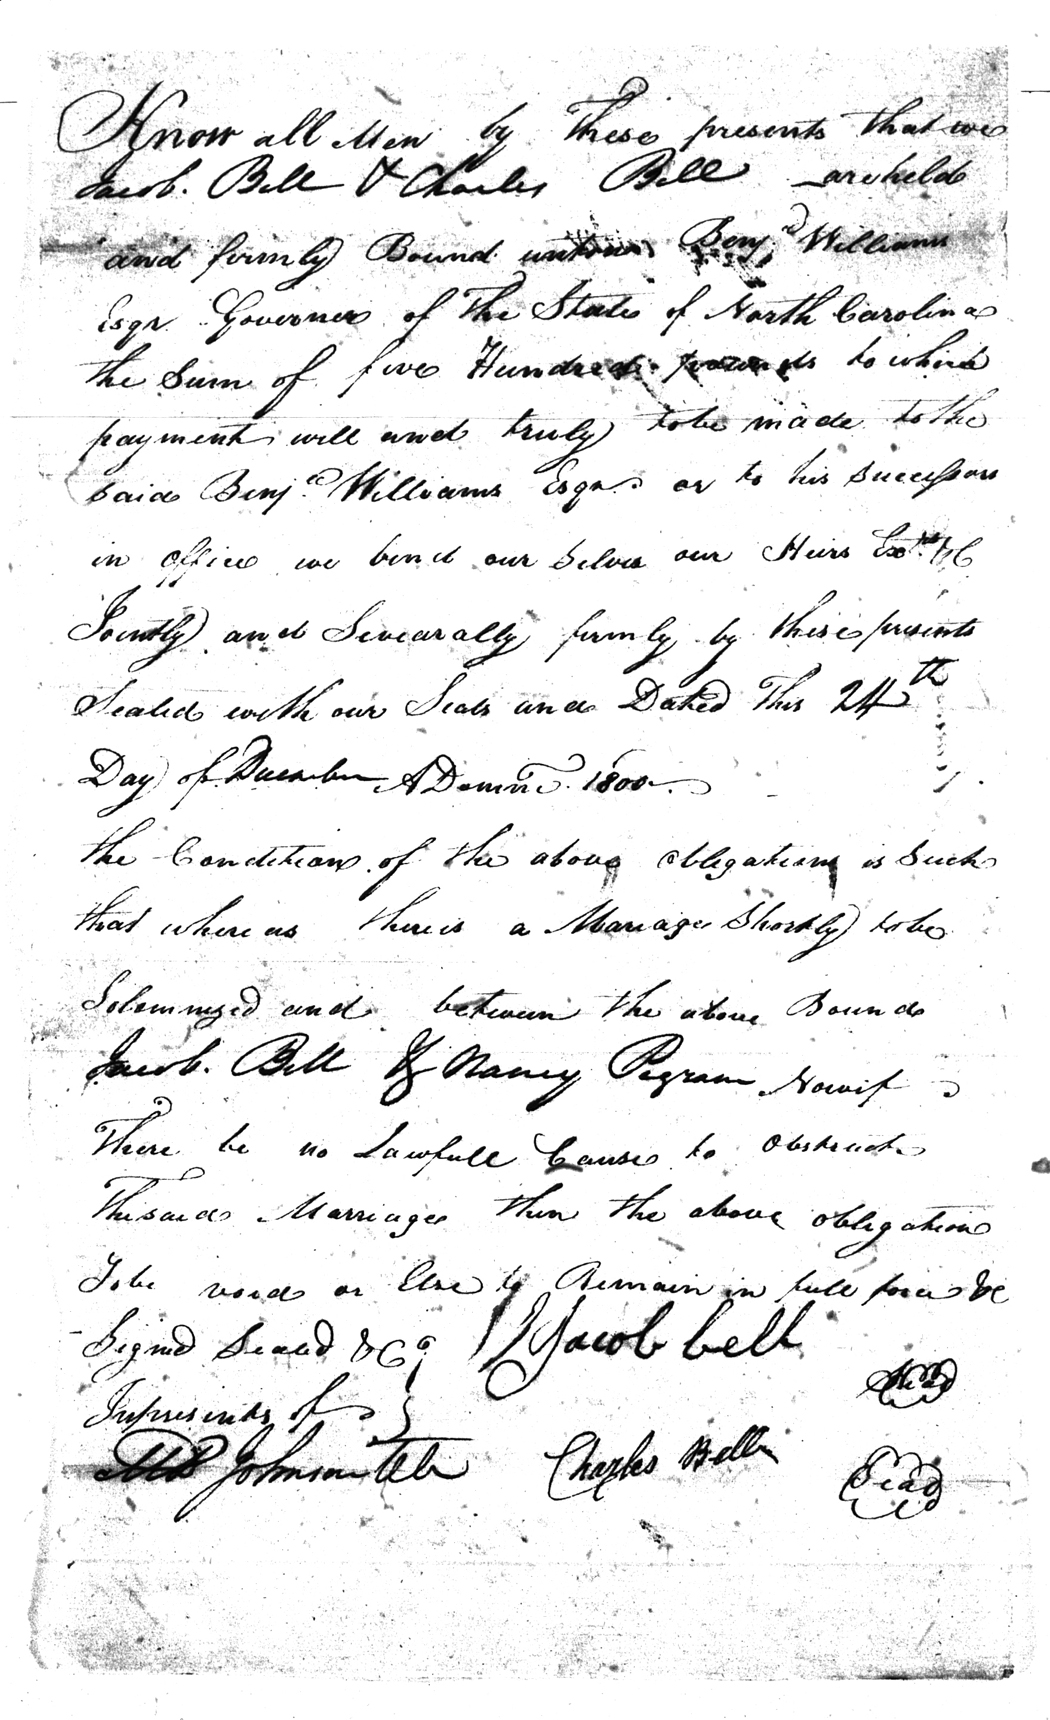 Know all Men by These presents that we
Jacob. Bell & Charles Bell are held
and firmly Bound unto Benjᵈ Williams
Esqr. Governer of The State of North Carolina
the Sum of five Hundred pounds to which
payment will and truly to be made to the
said Benjᵈ. Williams Esqr. or to his Successors
in office we bind our Selves our Heirs Exrs &C
Jointly and Sevearally firmly by these presents
Sealed with our Seals and Dated This 24th
Day of December A Domini 1800.
the Condition of the above obligation is Such
that where as there is a Mariage Shortly to be
Solemnized and between the above Bound
Jacob. Bell & Nancy Pegram Now if
There be no Lawfull Cause to obstruct
The said Marriage then the above obligation
To be void or Else to Remain in full force &C
Signd Seald &C Jacob bell Seal
In presents of
Johnson Charles Bell Seal